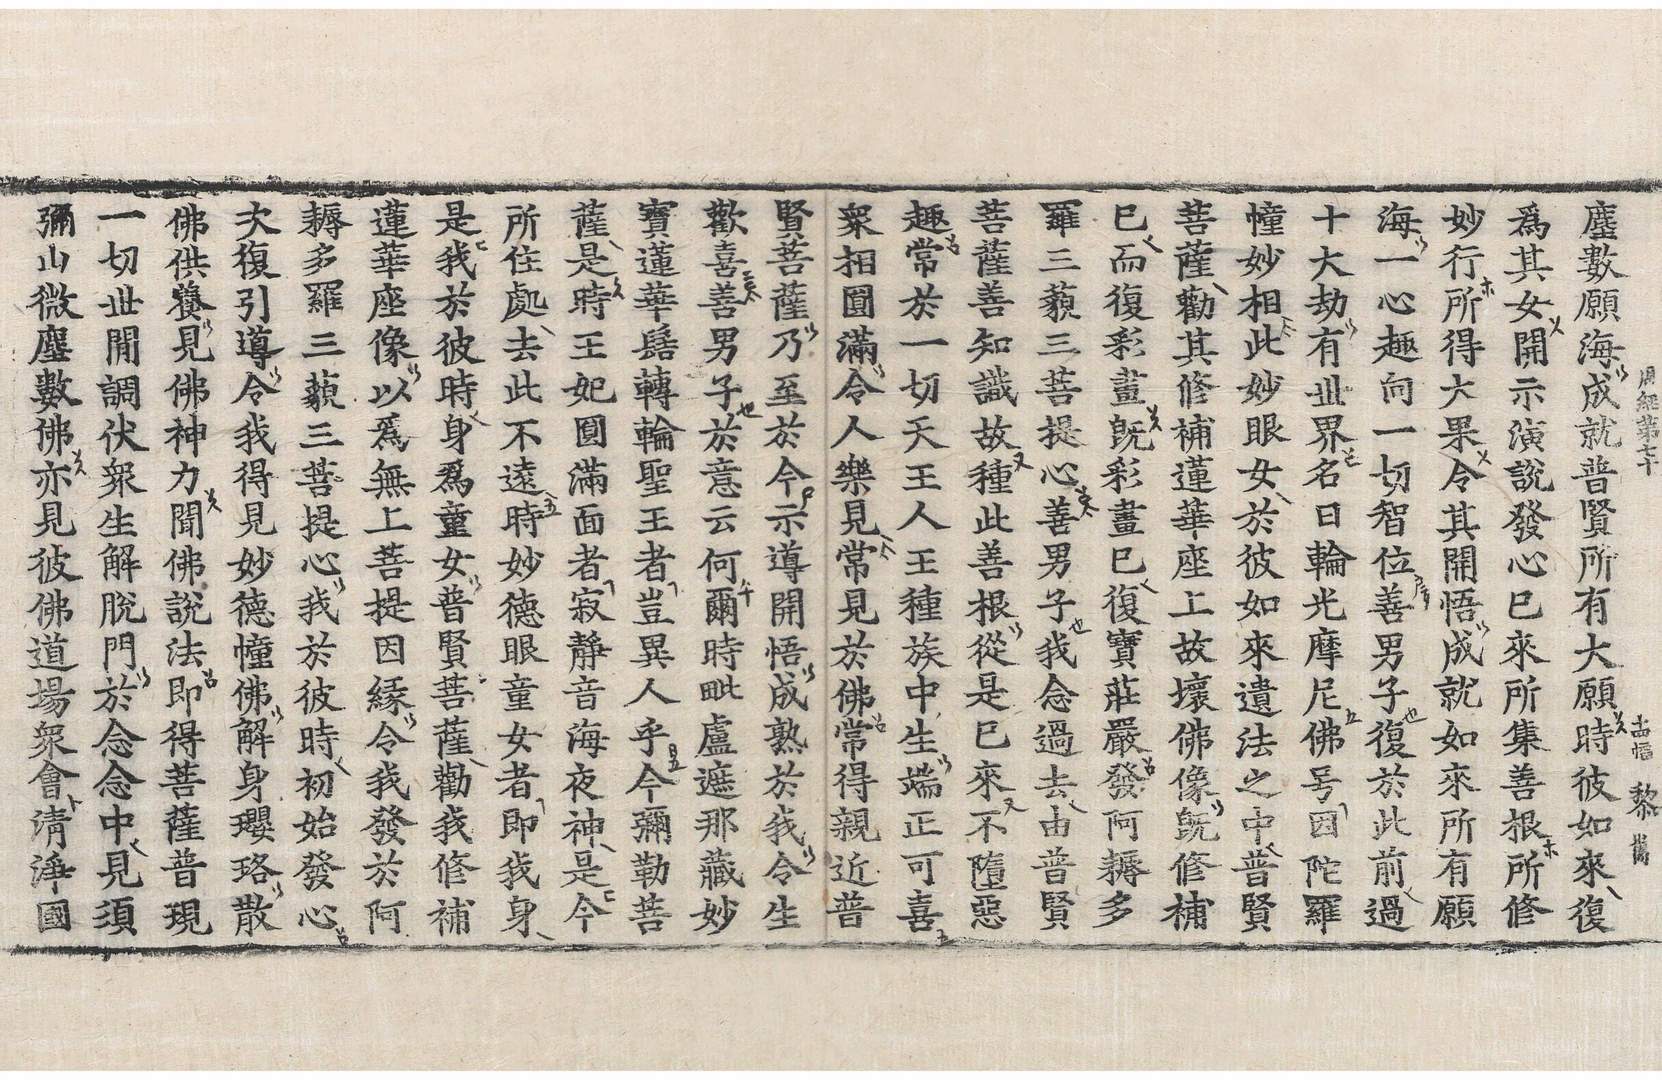 塵數願海成就普賢所有大願時彼如來復
爲其女開示演說發心已來所集善根所修
妙行所得大果令其開悟成就如來所有願
海一心趣向一切智位善男子復於此前過
十大劫有世界名日輪光摩尼佛号因陀羅
幢妙相此妙眼女於彼如來遺法之中普賢
菩薩勸其修補蓮華座上故壞佛像旣修補
已而復彩畫旣彩畫已復寶莊嚴發阿耨多
羅三藐三菩提心善男子我念過去由普賢
菩薩善知識故種此善根從是已來不墮惡
趣常於一切天王人王種族中生端正可喜
衆相圓滿令人樂見常見於佛常得親近普
賢菩薩乃至於今示導開悟成熟於我令生
歡喜善男子於意云何爾時毗盧遮那藏妙
寶蓮華髻轉輪聖王者豈異人乎今彌勒菩
薩是時王妃圓滿面者寂靜音海夜神是今
所住處去此不遠時妙德眼童女者即我身
是我於彼時身爲童女普賢菩薩勸我修補
蓮華座像以爲無上菩提因緣令我發於阿
耨多羅三藐三菩提心我於彼時初始發心
次復引導令我得見妙德幢佛解身瓔珞散
佛供養見佛神力聞佛說法即得菩薩普現
一切世間調伏衆生解脫門於念念中見須
彌山微塵數佛亦見彼佛道場衆會清淨國